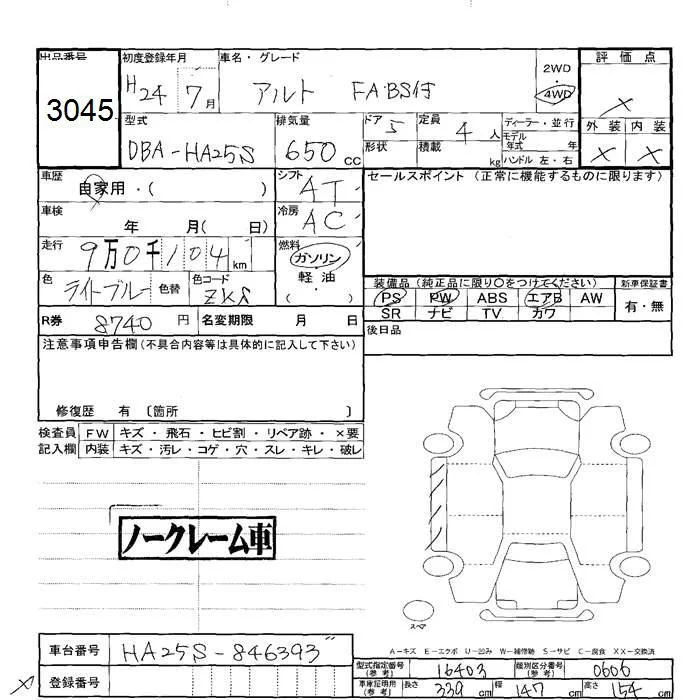 出品番号 初度登録年月 車名・グレード 2WD 評価点
3045 H24 7月 アルト FA・BS付 4WD ×
型式 排気量 ドア 5 定員 4人 ディーラー・並行 外装 内装
DBA-HA25S 650cc 形状 積載 kg モデル年式 年 × ×
ハンドル 左・右
車歴 自家用・( ) シフト AT セールスポイント(正常に機能するものに限ります)
車検 年 月( 日) 冷房 AC
走行 9万0千104km 燃料 ガソリン
軽油
・( )
色 ライトブルー 色替 色コード 装備品(純正品に限り○をつけてください) 新車保証書
PS PW ABS エアB AW 有・無
SR ナビ TV カワ
R券 8740円 名変期限 月 日 後日品
注意事項申告欄(不具合内容等は具体的に記入して下さい)
修復歴 有 〔箇所 〕
検査員 FW キズ・飛石・ヒビ割・リペア跡・×要
記入欄 内装 キズ・汚レ・コゲ・穴・スレ・キレ・破レ
ノークレーム車
スペア
A-キズ E-エクボ U-凹み W-補修跡 S-サビ C-腐食 XX-交換済
車台番号 HA25S-846393 型式指定番号(参考) 16403 類別区分番号(参考) 0606
登録番号 車庫証明用(参考) 長さ 339cm 幅 147cm 高さ 154cm